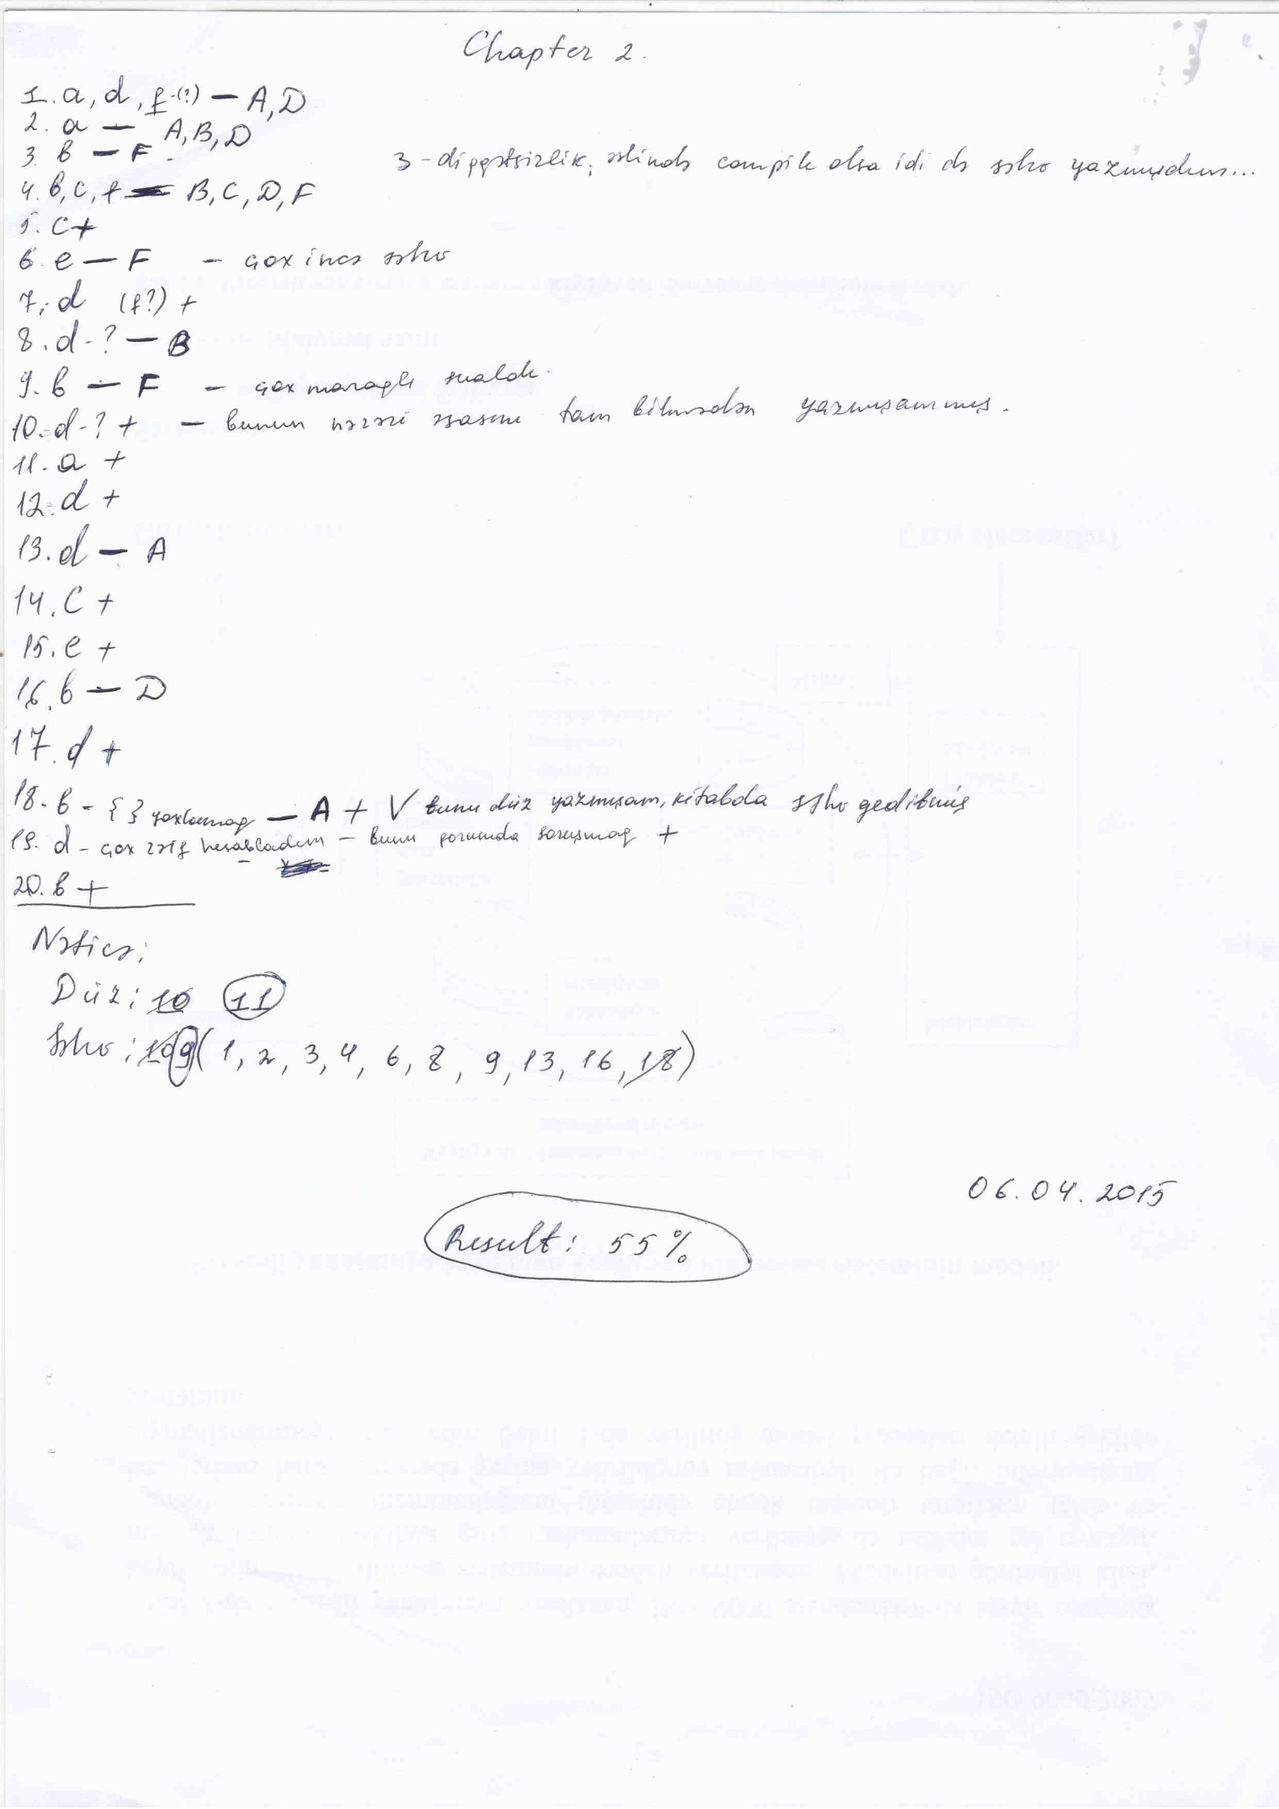 Chapter 2.
1. a, d, f-(?) — A, D
2. a — A, B, D
3. b — F.
3 - diqqətsizlik, əslində compile olsa idi də səhv yazmışdım...
4. b, c, f — B, C, D, F
5. c +
6. e — F - çox incə səhv
7. d (f?) +
8. d - ? — B
9. b — F - çox maraqlı sualdı.
10. d - ? + - bunun nəzəri əsasını tam bilmədən yazmışammış.
11. a +
12. d +
13. d — A
14. c +
15. e +
16. b — D
17. d +
18. b - { } yoxlamaq — A + V bunu düz yazmışam, kitabda səhv gedibmiş
19. d - çox zəif hesabladım - bunu forumda soruşmaq +
20. b +
Nəticə:
Düz: 10 11
Səhv: 10 9 (1, 2, 3, 4, 6, 8, 9, 13, 16, 18)
06.04.2015
Result: 55%